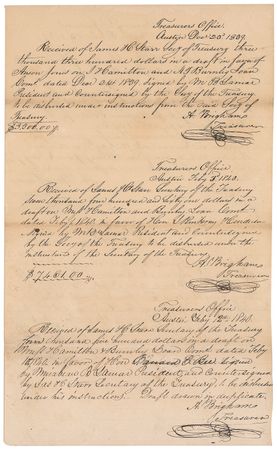 Treasurers Office
Austin Decr 20th 1839.
Received of James H Starr Secy of Treasury three
thousand three hundred dollars in a draft in favor of
Anson Jones on J Hamilton and A T Burnley Loan
Comrs dated Decr 1839 signed by M B Lamar
President and Countersigned by the Secy of the Treasury
to be disbursed under instructions from the said Secy of
Treasury
$3,300.00 A Brigham
Treasurer
Treasurers Office
Austin Feby 1840.
Received of James H Starr Secretary of the Treasury
Seven thousand four hundred and sixty one dollars in a
draft on Messrs Hamilton and Burnley Loan Comrs
dated Feby 1840 in favor of Henderson
signed by M B Lamar President and Countersigned
by the Secy of the Treasury to be disbursed under the
instructions of the Secretary of the Treasury.
A Brigham
$7,461.00 Treasurer
Treasurers Office
Austin Feby 12th 1840.
Received of James H Starr Secretary of the Treasury
thousand five hundred dollars in a draft on
Messrs Hamilton & Burnley Loan Comrs dated Feby
1840 in favor of Hon signed
by Mirabeau B Lamar President and Countersigned
by Jas H Starr Secretary of the Treasury to be disbursed
under his instructions. Draft drawn in duplicate.
A Brigham
Treasurer